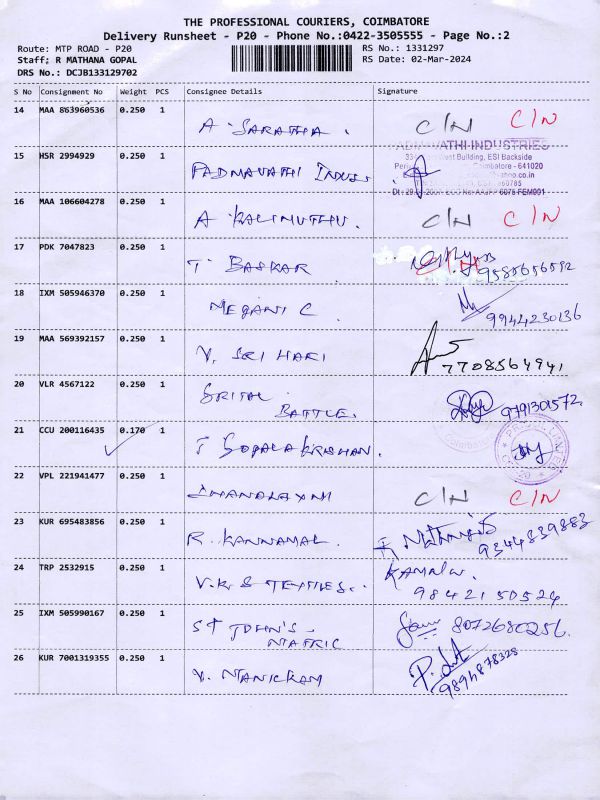 THE PROFESSIONAL COURIERS, COIMBATORE
Delivery Runsheet - P20 - Phone No.:0422-3505555 - Page No.:2
Route: MTP ROAD - P20
Staff; R MATHANA GOPAL
DRS No.: DCJB133129702
RS No.: 1331297
RS Date: 02-Mar-2024
S No Consignment No Weight PCS Consignee Details Signature
14 MAA 863960536 0.250 1 A. SARATHA. C/N C/N
15 HSR 2994929 0.250 1 PADMAVATHI INDUS.
PADMAVATHI INDUSTRIES
West Building, ESI Backside
Coimbatore - 641020
16 MAA 106604278 0.250 1 A KALIMUTHU. C/N C/N
17 PDK 7047823 0.250 1 T. BASKAR 9585656592
18 IXM 505946370 0.250 1 MEGANI C. 9944230136
19 MAA 569392157 0.250 1 V. SRI HARI 7708564941
20 VLR 4567122 0.250 1 BATTLE. 9791301572.
21 CCU 200116435 0.170 1 T GOPALAKRISHNAN.
Coimbatore
22 VPL 221941477 0.250 1 C/N C/N
23 KUR 695483856 0.250 1 R. KANNAMAL. 9344839883
24 TRP 2532915 0.250 1 V.K.S TEXTILES.. Kamala. 98421 50524
25 IXM 505990167 0.250 1 ST JOHN'S - MATRIC 8072680256.
26 KUR 7001319355 0.250 1 V. MANICKAM 9894878328